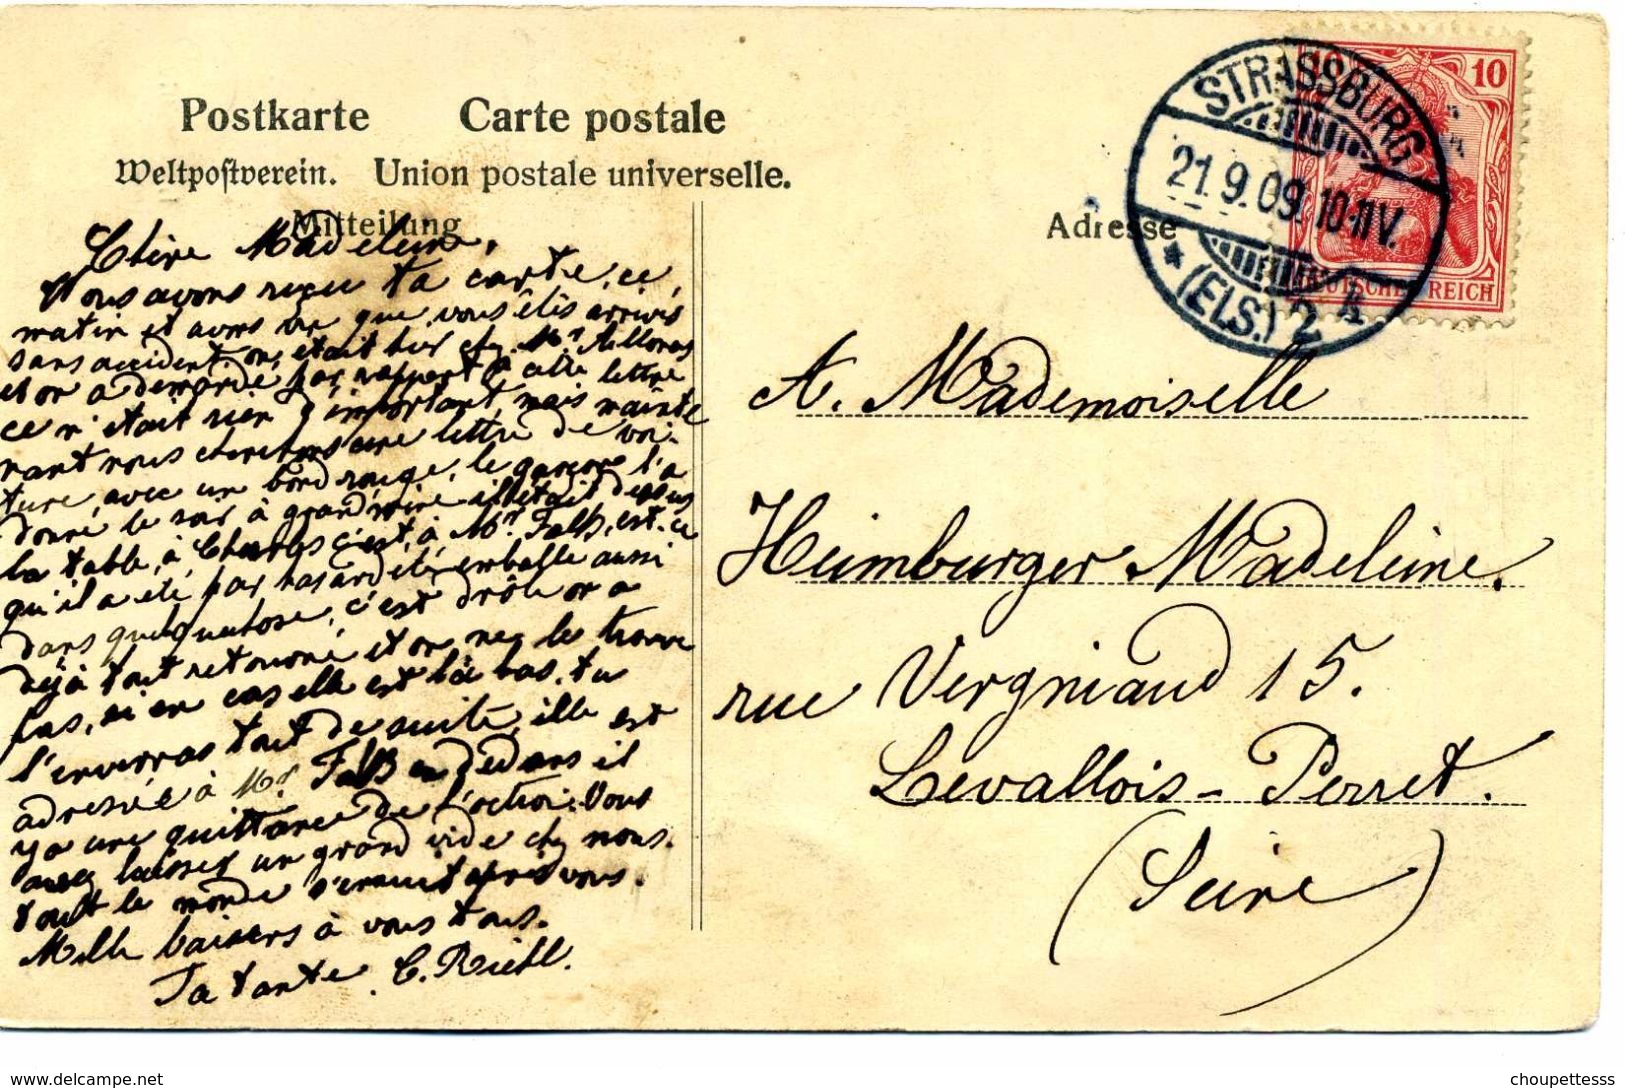 Postkarte Carte postale
Weltpostverein. Union postale universelle.
Mitteilung
Adresse
STRASSBURG
21.9.09. 10-11V.
* (ELS.) 2 h
10
DEUTSCHES REICH
Chère Madeleine,
Nous avons reçu ta carte, ce
matin et avons vu que vous êtes arrivés
sans accident, on était hier chez Mr
et on a demandé par rapport à cette lettre
ce n'était rien d'important, mais mainte
nant nous cherchons une lettre de voi-
ture, avec un bord rouge, le garçon l'a
donné le soir à grandmère illétait dessus
la table, à Charles c'est à Mr. Falb, est-ce
qu'il a été par hasard été emballé aussi
dans quelquechose, c'est drôle on a
déjà tout retourné et on ne le trouve
pas, si en cas elle est là bas, tu
l'enverras tout de suite, ille est
adressée à Mr. Falb en dedans il
ya une quittance de l'octroi. Vous
avez laissez un grand vide chez nous.
tout le monde s'ennuit après vous.
Mille baisers à vous tous.
Ta tante. C. Riehl.
A. Mademoiselle
Heimburger Madeleine.
rue Vergniaud 15.
Levallois-Perret.
(Seine)
delcampe.net
choupettesss